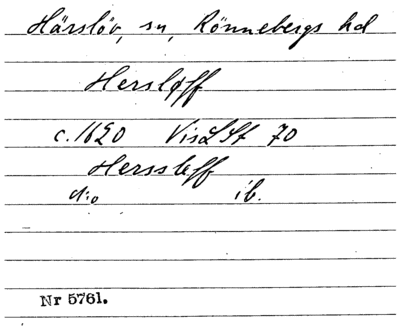 Härslöv, sn, Rönnebergs hd
Hersløff
c. 1620 VisLSt 70
Hersleff
d:o ib.
Nr 5761.